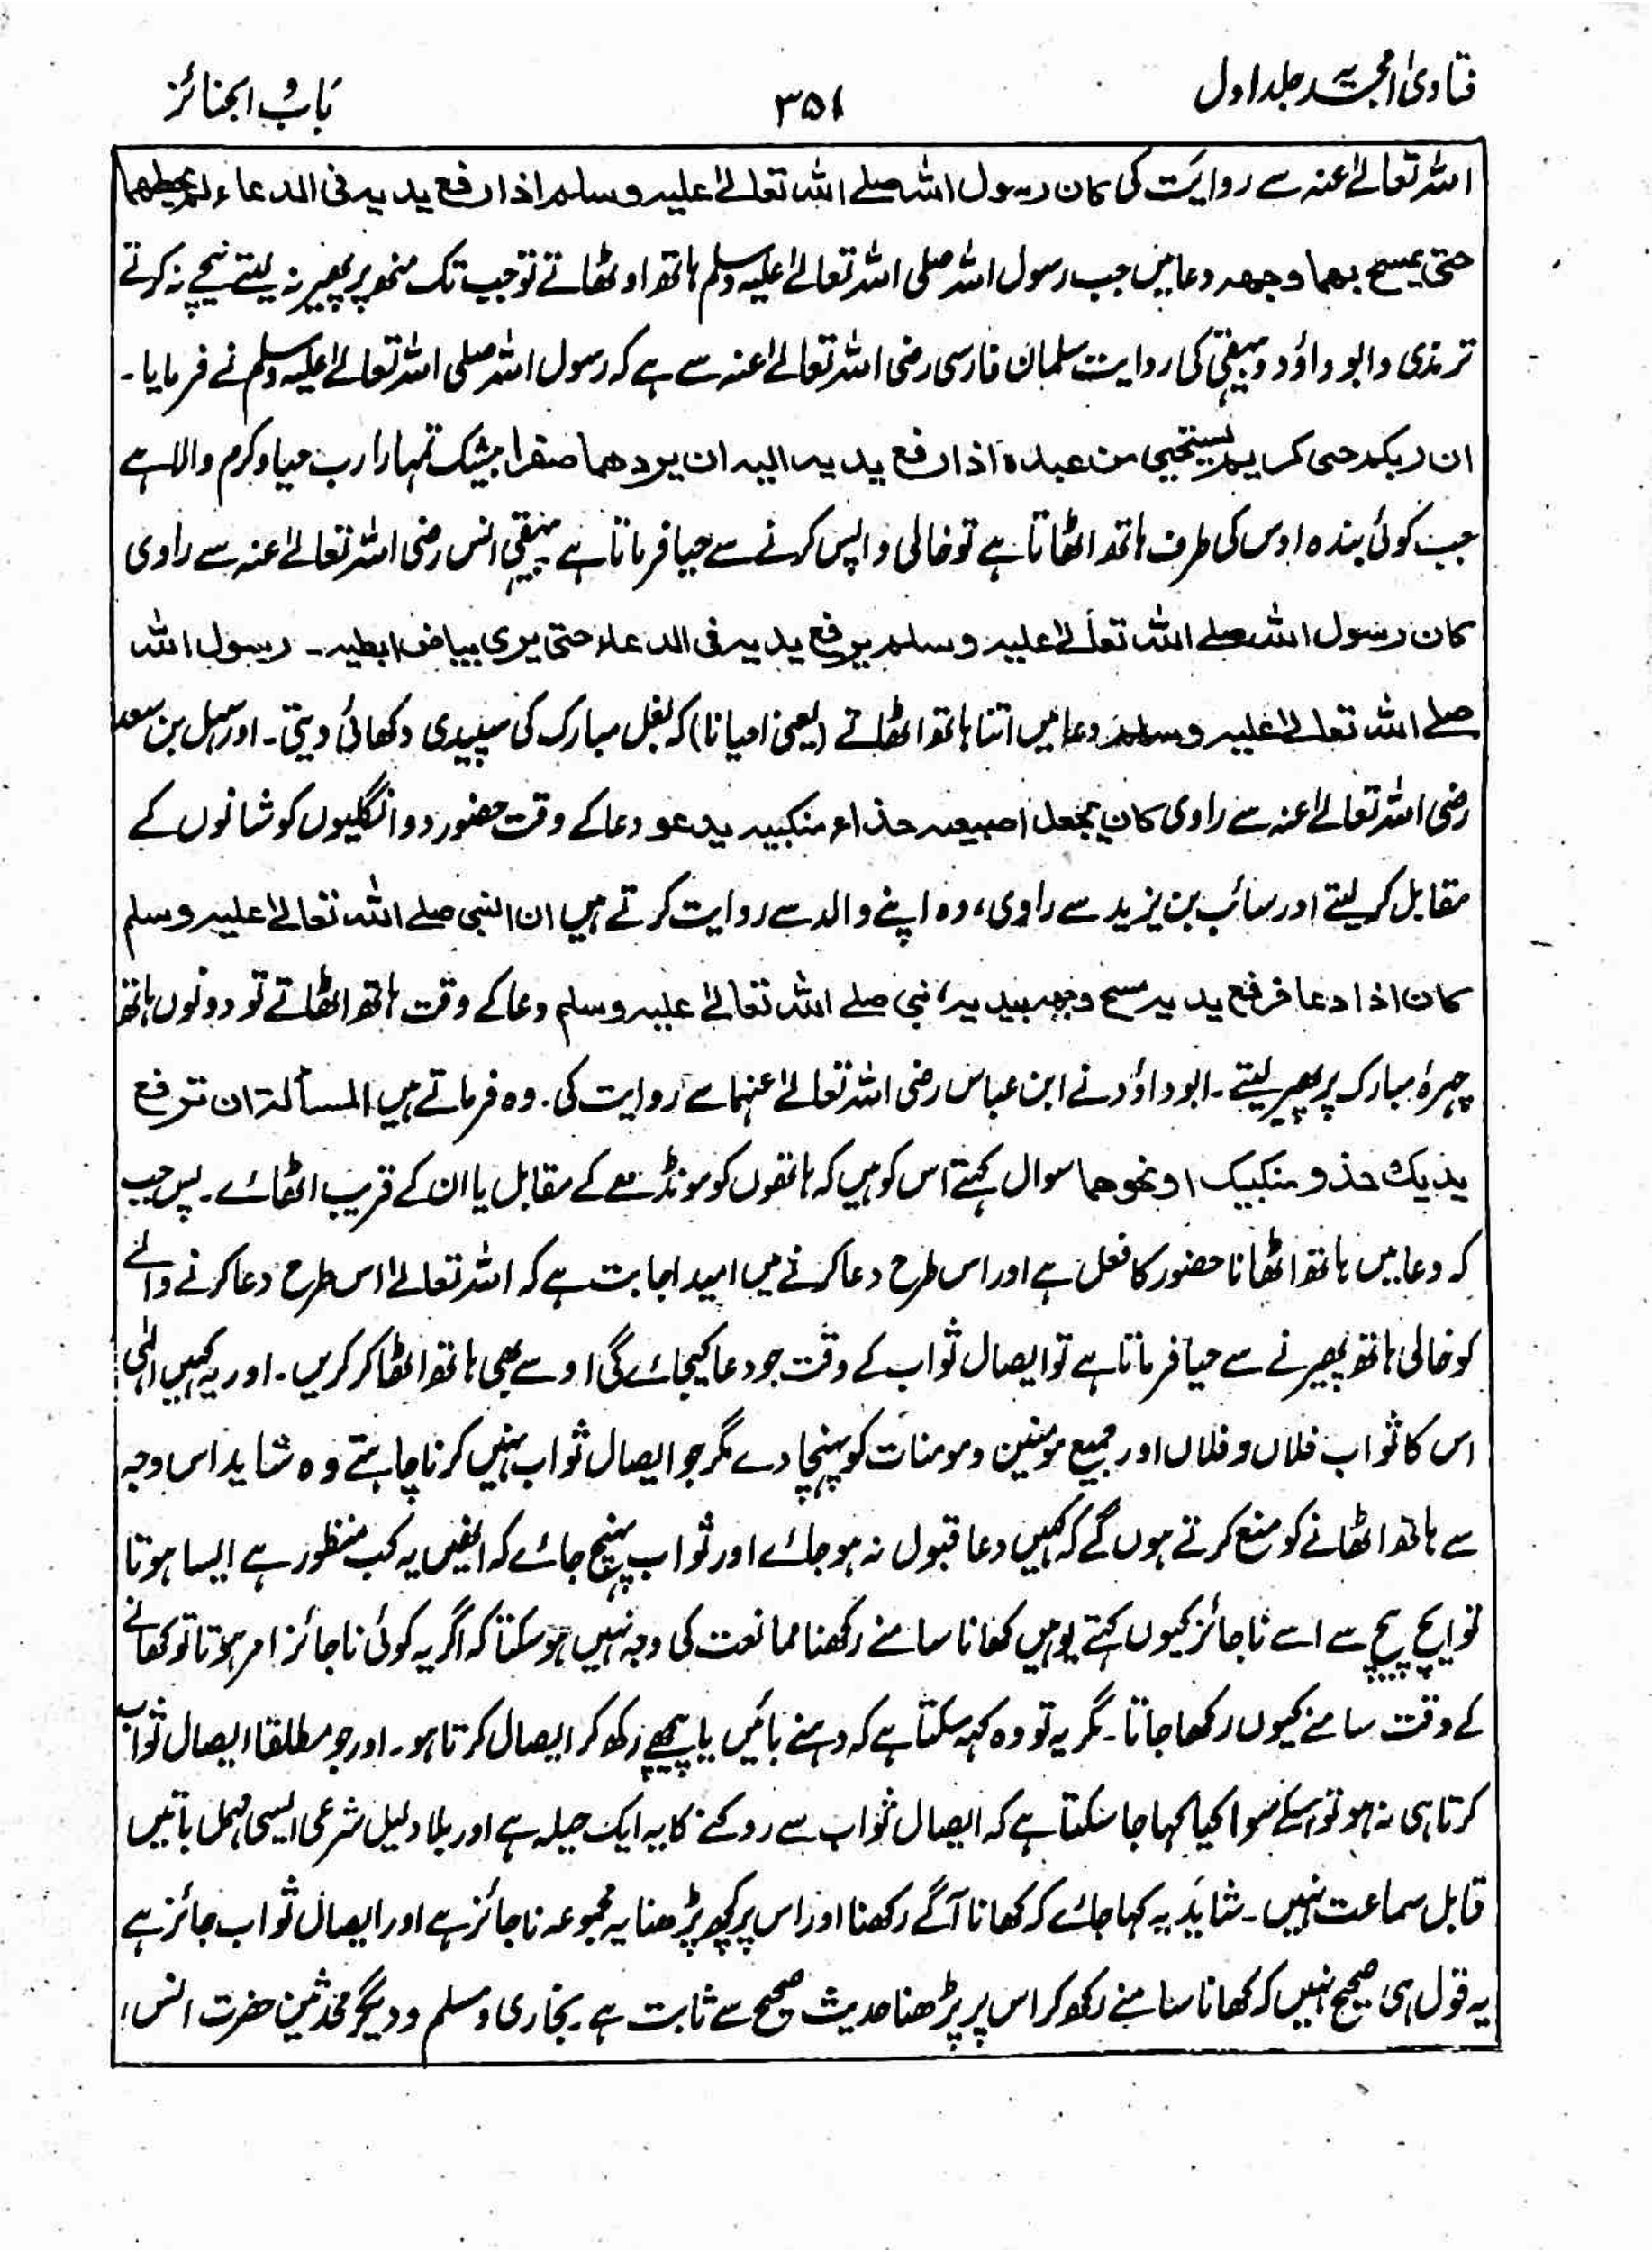 فتاویٰ امجدیہ جلد اول
۳۵۱
بَابُ الجنائز
اللہ تعالےٰ عنہ سے روایت کی کان رسول اللہ صلے اللہ تعالےٰ علیہ وسلم اذا رفع یدیہ فی الدعاء لم یحطهما
حتیٰ یمسح بهما وجهہ دعا میں جب رسول اللہ صلی اللہ تعالےٰ علیہ وسلم ہاتھ اوٹھاتے تو جب تک منھ پر پھیر نہ لیتے نیچے نہ کرتے
ترمذی و ابو داؤد و بیہقی کی روایت سلمان فارسی رضی اللہ تعالےٰ عنہ سے ہے کہ رسول اللہ صلی اللہ تعالےٰ علیہ وسلم نے فرمایا۔
ان ربکم حی کریم یستحیی من عبدہ اذا رفع یدیہ الیہ ان یردهما صفرا بیشک تمہارا رب حیا و کرم والا ہے
جب کوئی بندہ اوس کی طرف ہاتھ اٹھاتا ہے تو خالی واپس کرنے سے حیا فرماتا ہے بیہقی انس رضی اللہ تعالےٰ عنہ سے راوی
کان رسول اللہ صلے اللہ تعالےٰ علیہ وسلم یرفع یدیہ فی الدعاء حتیٰ یری بیاض ابطیہ۔ رسول اللہ
صلے اللہ تعالےٰ علیہ وسلم دعا میں اتنا ہاتھ اٹھاتے (یعنی احیانا) کہ بغل مبارک کی سپیدی دکھائی دیتی۔ اور سہل بن سعد
رضی اللہ تعالےٰ عنہ سے راوی کان یجعل اصبیعہ حذاء منکبیہ یدعو دعا کے وقت حضور دو انگلیوں کو شانوں کے
مقابل کر لیتے اور سائب بن یزید سے راوی، وہ اپنے والد سے روایت کرتے ہیں ان النبی صلے اللہ تعالےٰ علیہ وسلم
کان اذا دعا فرفع یدیہ مسح وجہہ بیدیہ، نبی صلے اللہ تعالےٰ علیہ وسلم دعا کے وقت ہاتھ اٹھاتے تو دونوں ہاتھ
چہرۂ مبارک پر پھیر لیتے۔ ابو داؤد نے ابن عباس رضی اللہ تعالےٰ عنہما سے روایت کی۔ وہ فرماتے ہیں المسألۃ ان ترفع
یدیک حذو منکبیک او نحوهما سوال کہتے اس کو ہیں کہ ہاتھوں کو مونڈھے کے مقابل یا ان کے قریب اٹھائے۔ پس جب
کہ دعا میں ہاتھ اٹھانا حضور کا فعل ہے اور اس طرح دعا کرنے میں امید اجابت ہے کہ اللہ تعالےٰ اس طرح دعا کرنے والے
کو خالی ہاتھ پھیرنے سے حیا فرماتا ہے تو ایصال ثواب کے وقت جو دعا کیجائے گی اوسے بھی ہاتھ اٹھا کر کریں۔ اور یہ کہیں الٰہی
اس کا ثواب فلاں و فلاں اور جمیع مومنین و مومنات کو پہنچا دے مگر جو ایصال ثواب نہیں کرنا چاہتے وہ شاید اس وجہ
سے ہاتھ اٹھانے کو منع کرتے ہوں گے کہ کہیں دعا قبول نہ ہو جائے اور ثواب پہنچ جائے کہ انھیں یہ کب منظور ہے ایسا ہوتا
تو ایچ پیچ سے اسے ناجائز کیوں کہتے یوہیں کھانا سامنے رکھنا ممانعت کی وجہ نہیں ہو سکتا کہ اگر یہ کوئی ناجائز امر ہوتا تو کھانے
کے وقت سامنے کیوں رکھا جاتا۔ مگر یہ تو وہ کہہ سکتا ہے کہ دہنے بائیں یا پیچھے رکھ کر ایصال کرتا ہو۔ اور جو مطلقا ایصال ثواب
کرتا ہی نہ ہو تو اسکے سوا کیا کہا جا سکتا ہے کہ ایصال ثواب سے روکنے کا یہ ایک حیلہ ہے اور بلا دلیل شرعی ایسی مہمل باتیں
قابل سماعت نہیں۔ شاید یہ کہا جائے کہ کھانا آگے رکھنا اور اس پر کچھ پڑھنا یہ مجموعہ ناجائز ہے اور ایصال ثواب جائز ہے
یہ قول ہی صحیح نہیں کہ کھانا سامنے رکھ کر اس پر پڑھنا حدیث صحیح سے ثابت ہے۔ بخاری و مسلم و دیگر محدثین حضرت انس